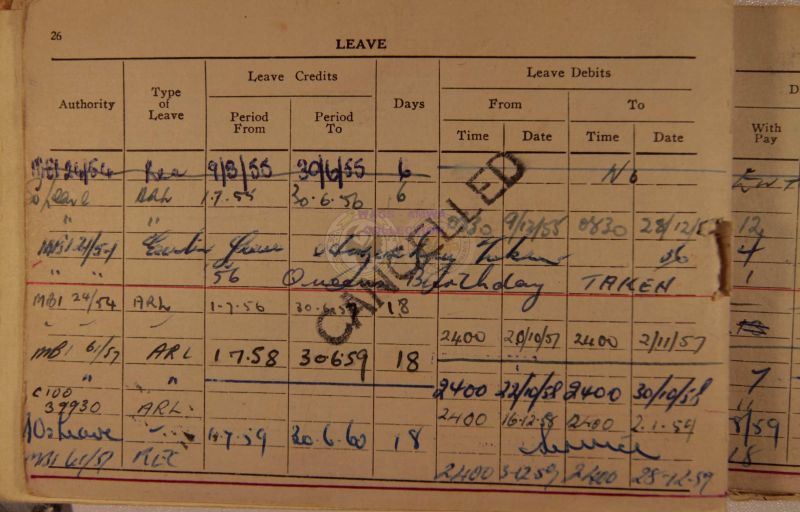 26
LEAVE
Authority Type of Leave Leave Credits Days Leave Debits D
Period From Period To From To With Pay
Time Date Time Date
MBI 24/54 Rec 9/3/55 30/6/55 6 No
ARL 1.7.55 30.6.56 6
" " 0830 9/12/55 0830 28/12/55 12
MBI 24/54 Taken 4
" " 56 Queens Birthday TAKEN 1
CANCELLED
MBI 24/54 ARL 1-7-56 30.6.57 18
2400 20/10/57 2400 2/11/57
MBI 61/57 ARL 1 7.58 30659 18
" " 2400 22/10/58 2400 30/10/58 7
C100 39930 ARL. 2400 16.12.58 2400 2.1.59 11
Leave 1.7.59 30.6.60 18 8/59
MBI 61/57 REC 2400 3.12.59 2400 28.12.59 18